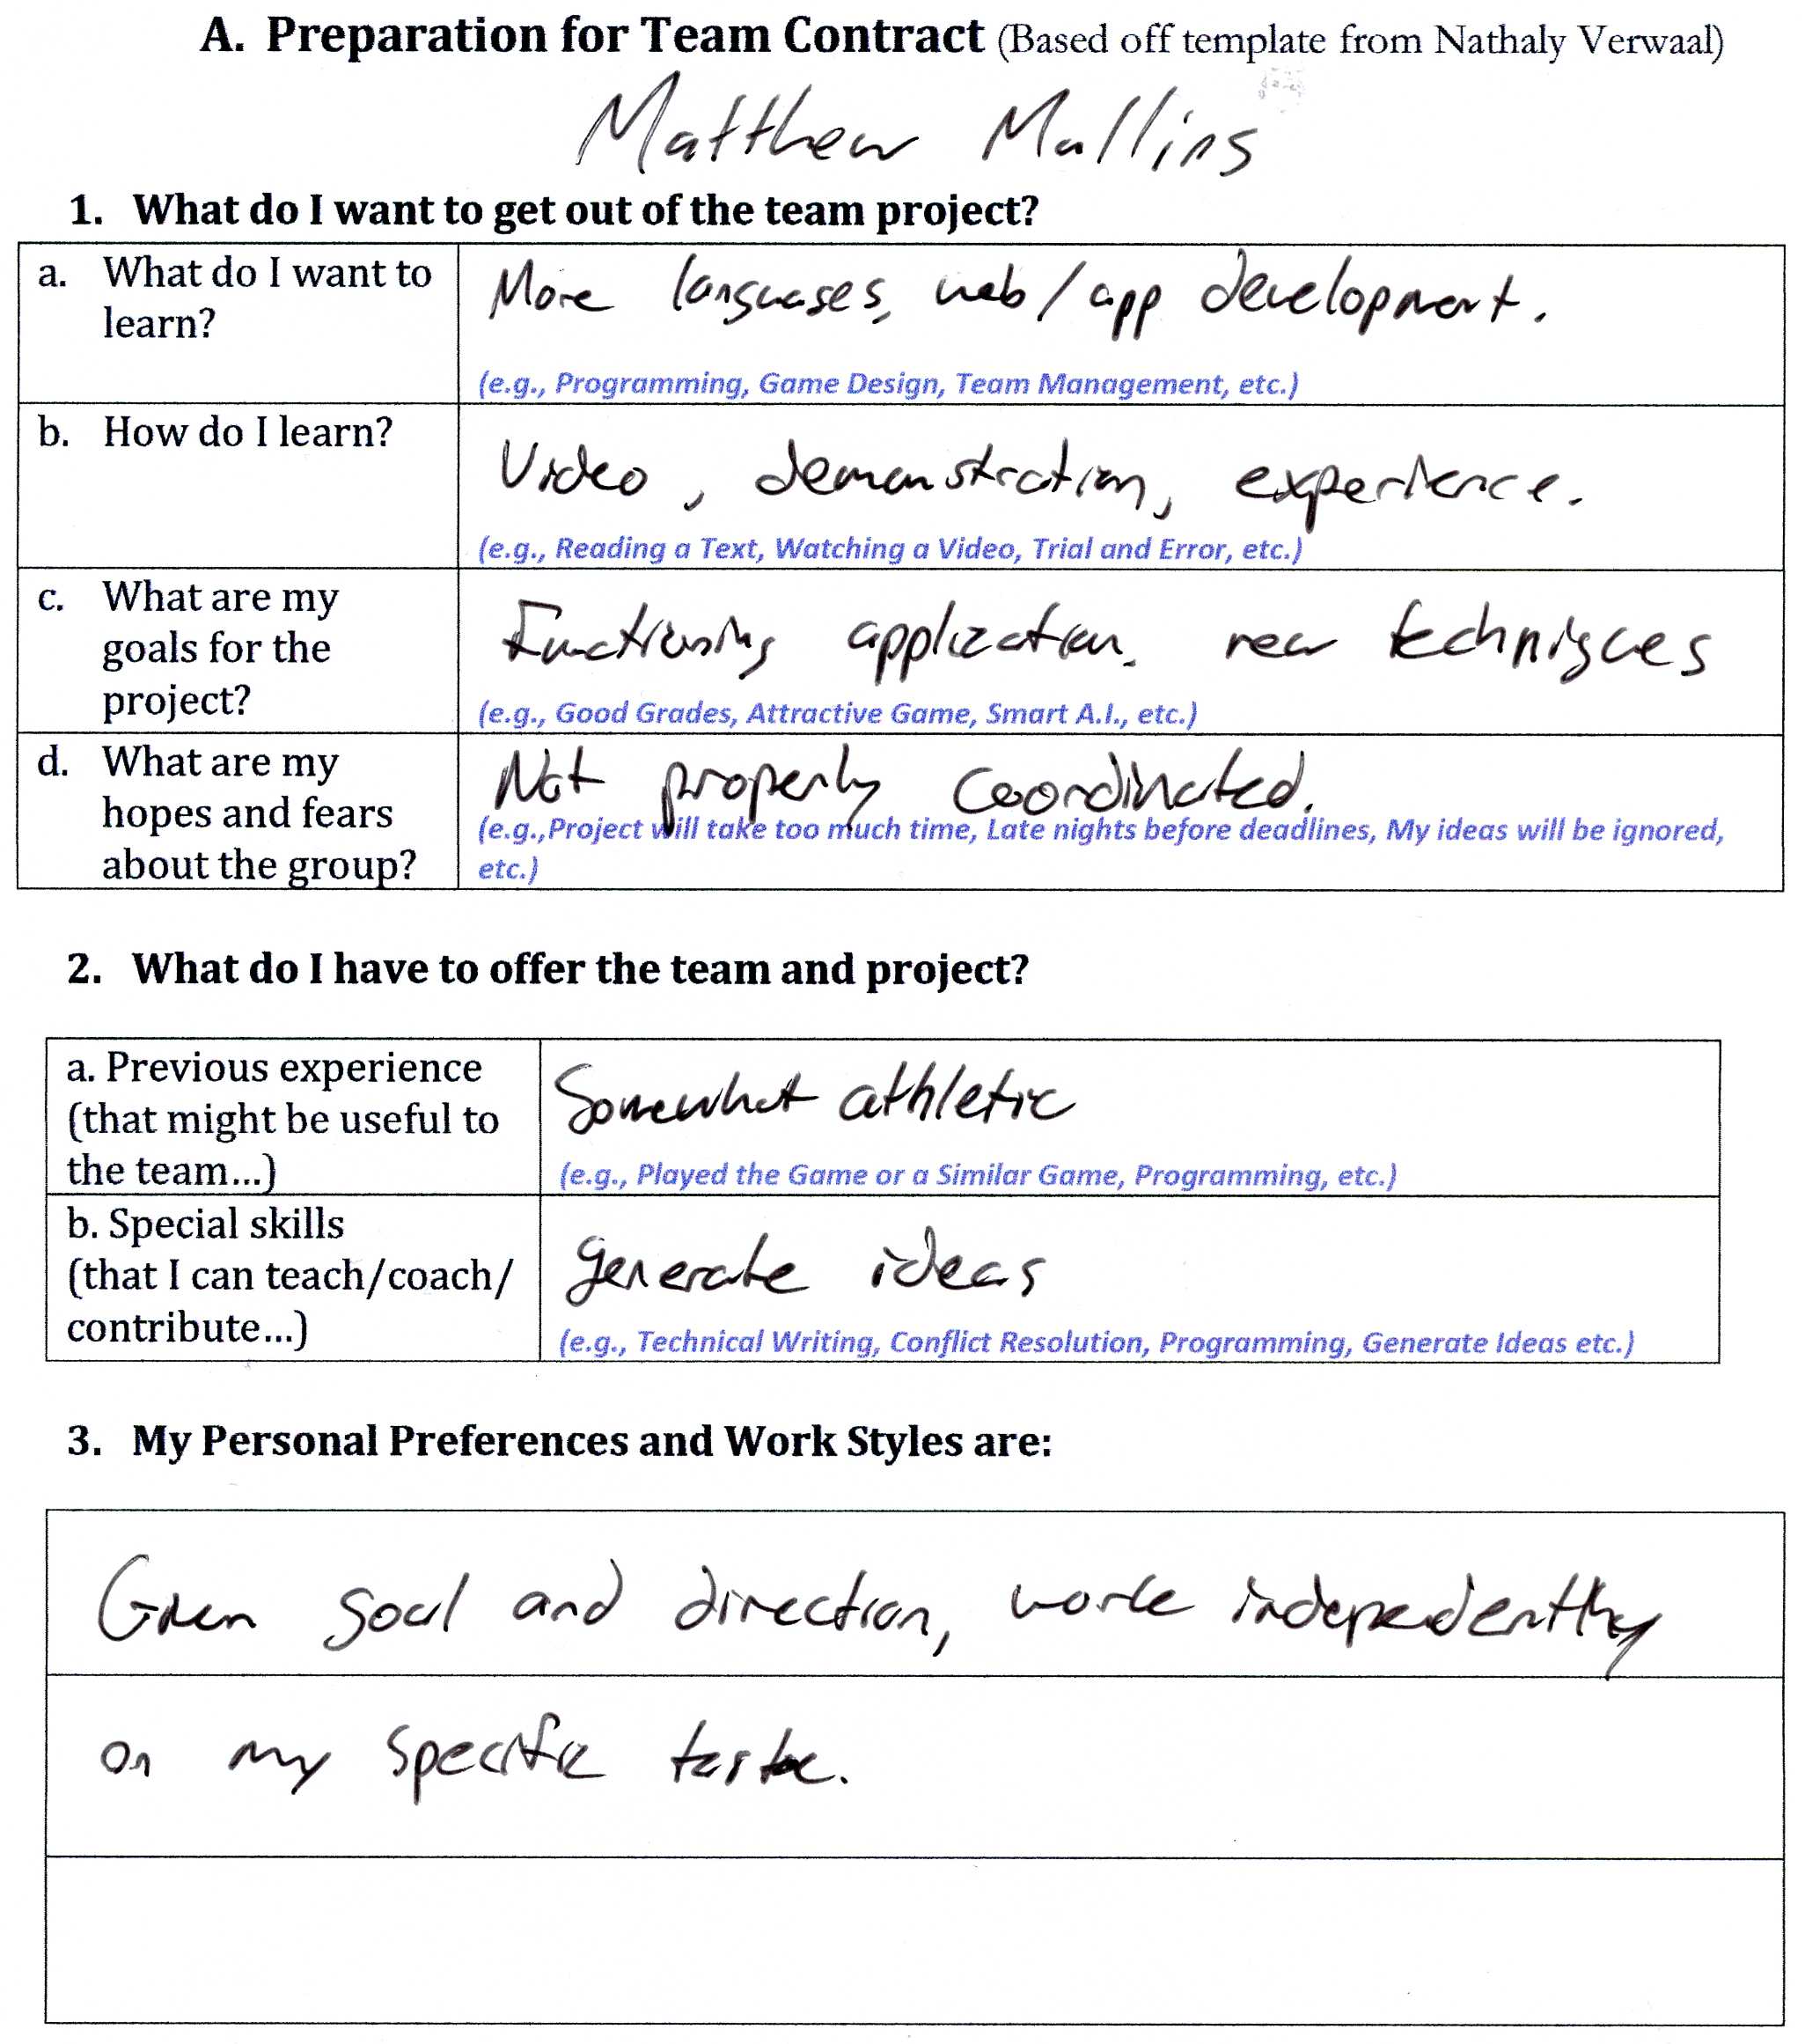 A. Preparation for Team Contract (Based off template from Nathaly Verwaal)
Matthew Mullins
1. What do I want to get out of the team project?
a. What do I want to learn?
More languages, web/app development.
(e.g., Programming, Game Design, Team Management, etc.)
b. How do I learn?
Video, demonstration, experience.
(e.g., Reading a Text, Watching a Video, Trial and Error, etc.)
c. What are my goals for the project?
Functioning application. new techniques
(e.g., Good Grades, Attractive Game, Smart A.I., etc.)
d. What are my hopes and fears about the group?
Not properly coordinated.
(e.g.,Project will take too much time, Late nights before deadlines, My ideas will be ignored,
etc.)
2. What do I have to offer the team and project?
a. Previous experience
(that might be useful to
the team...)
Somewhat athletic
(e.g., Played the Game or a Similar Game, Programming, etc.)
b. Special skills
(that I can teach/coach/
contribute...)
generate ideas
(e.g., Technical Writing, Conflict Resolution, Programming, Generate Ideas etc.)
3. My Personal Preferences and Work Styles are:
Given goal and direction, work independently
on my specific task.